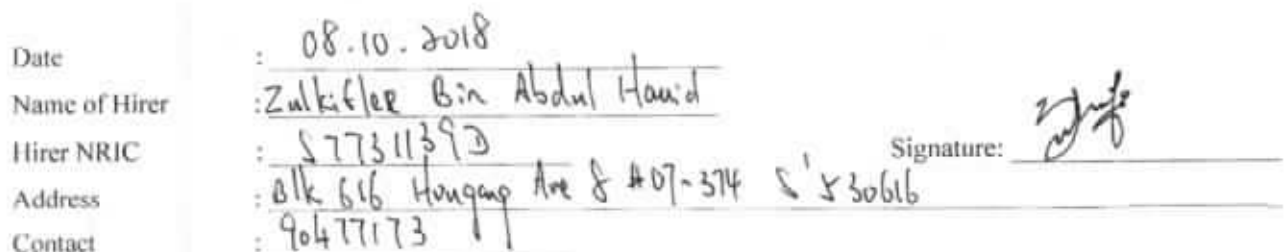 Date : 08.10.2018
Name of Hirer : Zulkiflee Bin Abdul Hamid
Hirer NRIC : S7731139D
Signature:
Address : Blk 616 Hougang Ave 8 #07-374 S'530616
Contact : 90477173